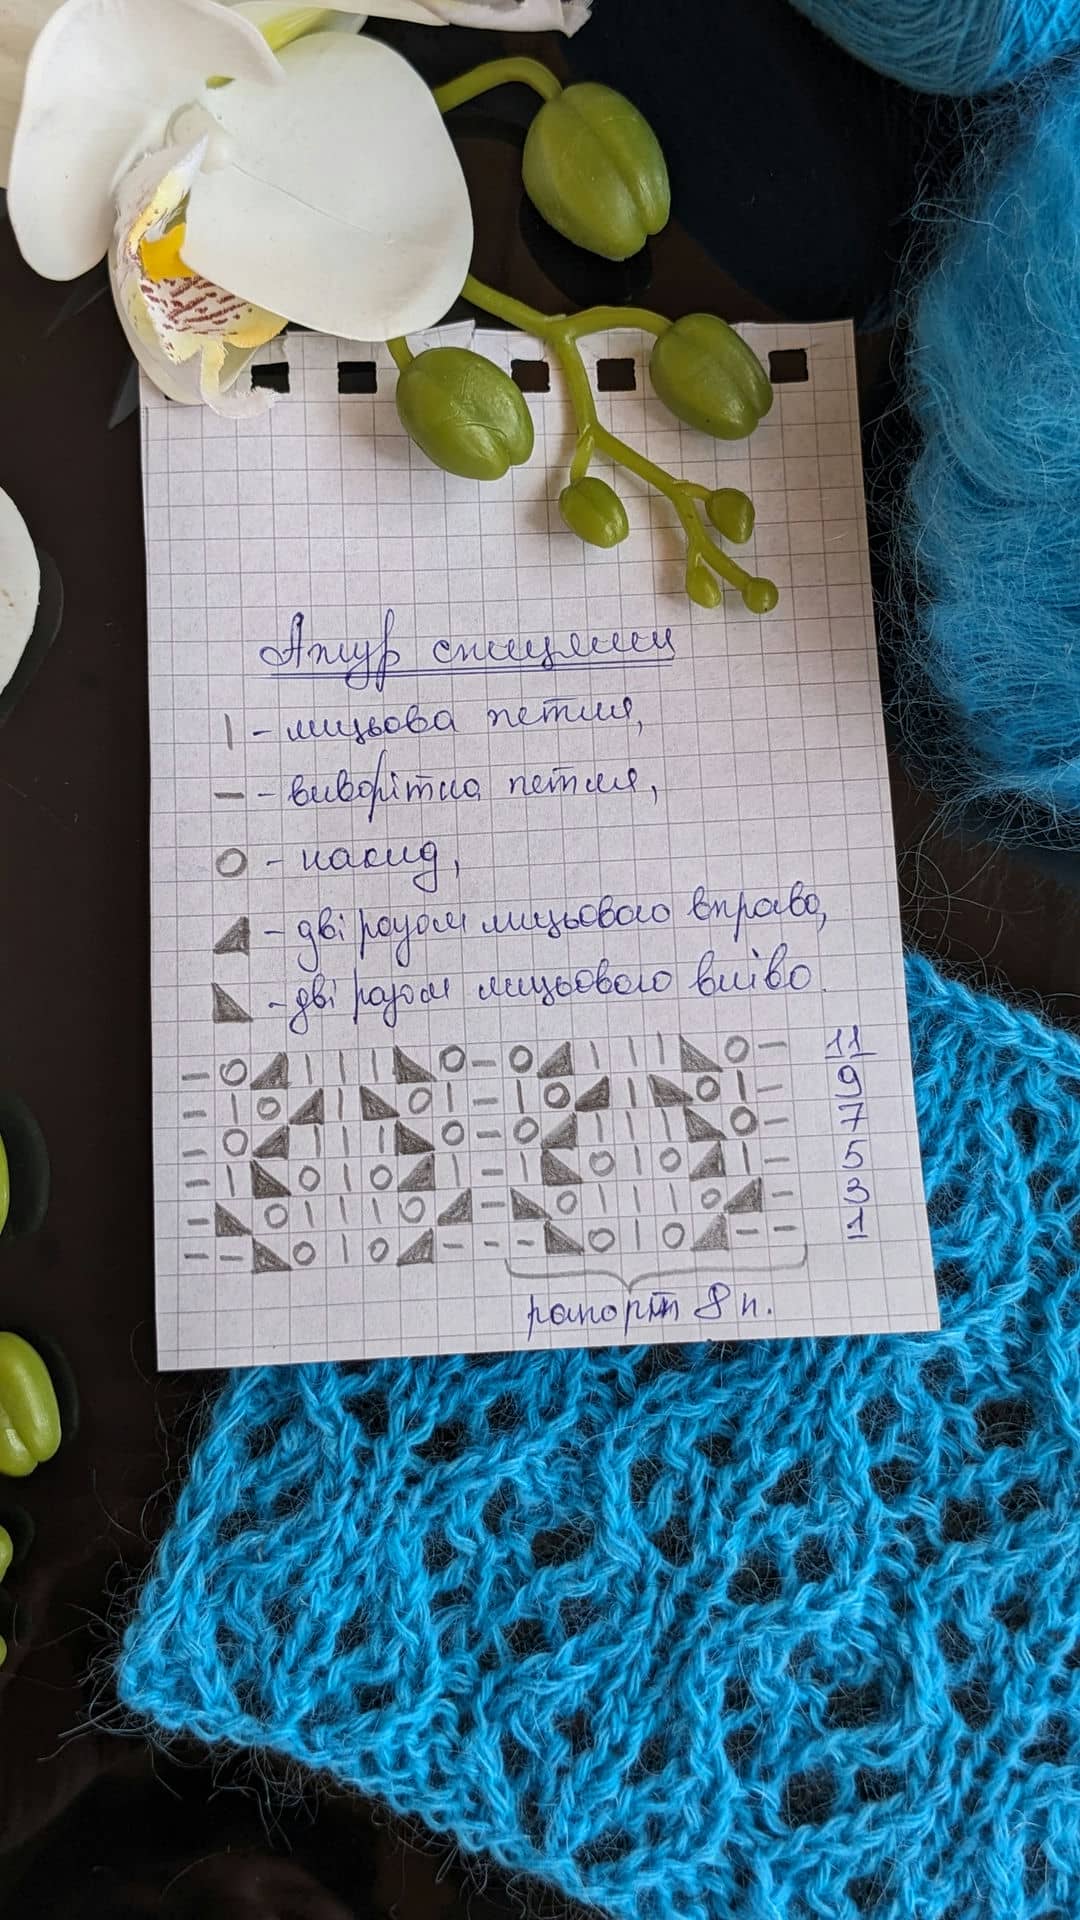 Ажур спицями
| - лицьова петля,
— - виворітна петля,
O - накид,
◢ - дві разом лицьового вправо,
◣ - дві разом лицьового вліво.
– O ◢ | | | ◣ O – O ◢ | | | ◣ O – 11
– | O ◢ | ◣ O | – | O ◢ | ◣ O | – 9
– O ◢ | | | ◣ O – O ◢ | | | ◣ O – 7
– | ◣ O | O ◢ | – | ◣ O | O ◢ | – 5
– ◣ O | | | O ◢ – ◣ O | | | O ◢ – 3
– – ◣ O | O ◢ – – – ◣ O | O ◢ – – 1
рапорт 8 п.